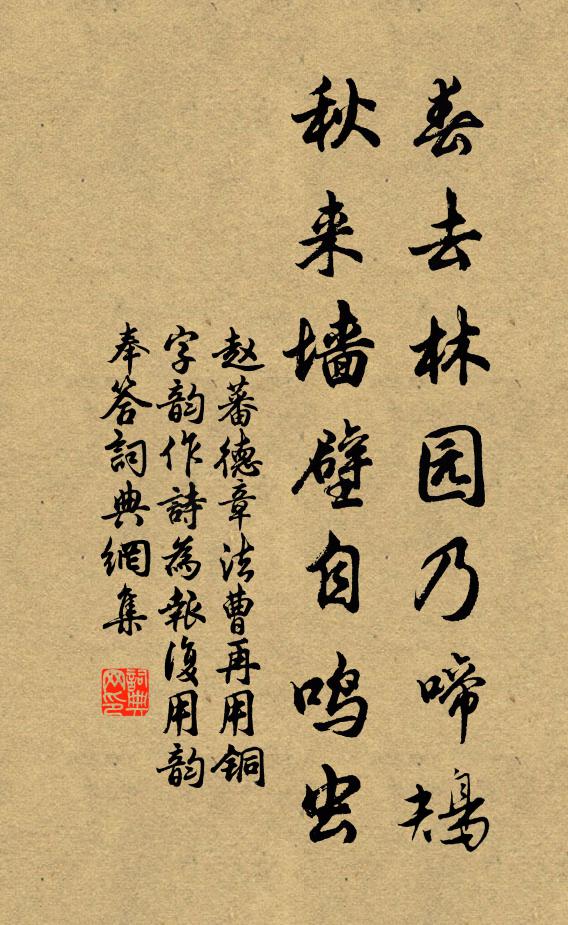 春去林园乃啼鴂
秋来墙壁自鸣虫
赵蕃德章法曹再用铜
字韵作詩為報復用韵
奉答詞典網集
詞典
网印